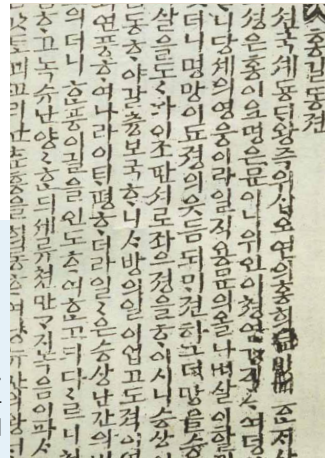 홍길동젼
션국 셰동ᄃᆡ왕 즉위 십오연의 홍희 ᄒᆞᆫ ᄌᆡ상
셩은 홍이요 명은 문이니 위인이 쳥염 ᄒᆞ여 덕
니 당셰의 영웅이라 일직 용문의 올나 벼살이 할림
더니 명망이 됴졍의 읏듬되ᄆᆡ 젼하 그 덕망을 승
살을 도〻와 이조판셔로 좌으졍을 ᄒᆞ이시니 승상이
동ᄒᆞ야 갈츙보국ᄒᆞ니 ᄉᆞ방의 일이 업고 도젹이
연풍ᄒᆞ여 나라이 ᄐᆡ평ᄒᆞ더라 일〻은 승상 난간의
의더니 ᄒᆞᆫ풍이 길을 인도ᄒᆞ여 ᄒᆞᆫ 고ᄃᆡ 다다르니
ᄒᆞ고 녹슈난 양〻ᄒᆞᆫᄃᆡ 셰류쳔만ᄀᆞ지 녹음이 파ᄉᆞ